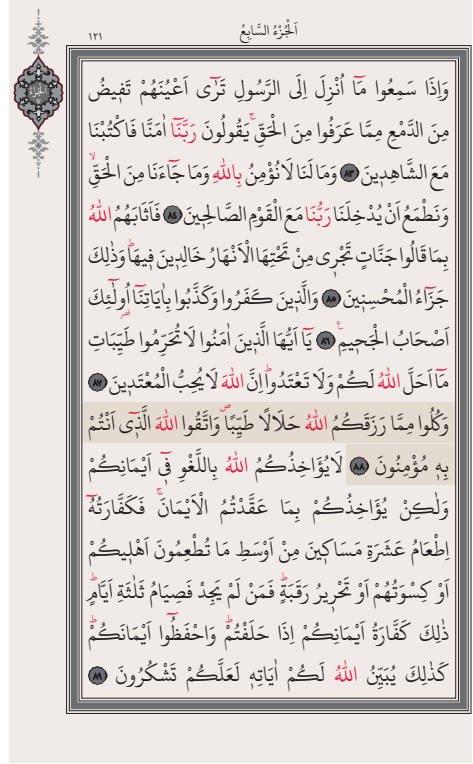 اَلْجُزْءُ السَّابِعُ
١٢١
اَلْجُزْءُ
وَاِذَا سَمِعُوا مَٓا اُنْزِلَ اِلَى الرَّسُولِ تَرٰٓى اَعْيُنَهُمْ تَفِيضُ
مِنَ الدَّمْعِ مِمَّا عَرَفُوا مِنَ الْحَقِّۚ يَقُولُونَ رَبَّنَٓا اٰمَنَّا فَاكْتُبْنَا
مَعَ الشَّاهِدِينَ ﴿٨٣﴾ وَمَا لَنَا لَا نُؤْمِنُ بِاللّٰهِ وَمَا جَٓاءَنَا مِنَ الْحَقِّۙ
وَنَطْمَعُ اَنْ يُدْخِلَنَا رَبُّنَا مَعَ الْقَوْمِ الصَّالِحِينَ ﴿٨٤﴾ فَاَثَابَهُمُ اللّٰهُ
بِمَا قَالُوا جَنَّاتٍ تَجْرِى مِنْ تَحْتِهَا الْاَنْهَارُ خَالِدِينَ فِيهَاۜ وَذٰلِكَ
جَزَٓاءُ الْمُحْسِنِينَ ﴿٨٥﴾ وَالَّذِينَ كَفَرُوا وَكَذَّبُوا بِاٰيَاتِنَٓا اُولٰٓئِكَ
اَصْحَابُ الْجَحِيمِ۟ ﴿٨٦﴾ يَٓا اَيُّهَا الَّذِينَ اٰمَنُوا لَا تُحَرِّمُوا طَيِّبَاتِ
مَٓا اَحَلَّ اللّٰهُ لَكُمْ وَلَا تَعْتَدُواۜ اِنَّ اللّٰهَ لَا يُحِبُّ الْمُعْتَدِينَ ﴿٨٧﴾
وَكُلُوا مِمَّا رَزَقَكُمُ اللّٰهُ حَلَالًا طَيِّبًاۖ وَاتَّقُوا اللّٰهَ الَّذِٓى اَنْتُمْ
بِهٖ مُؤْمِنُونَ ﴿٨٨﴾ لَا يُؤَاخِذُكُمُ اللّٰهُ بِاللَّغْوِ فِٓى اَيْمَانِكُمْ
وَلٰكِنْ يُؤَاخِذُكُمْ بِمَا عَقَّدْتُمُ الْاَيْمَانَۚ فَكَفَّارَتُهُٓ
اِطْعَامُ عَشَرَةِ مَسَاكِينَ مِنْ اَوْسَطِ مَا تُطْعِمُونَ اَهْلِيكُمْ
اَوْ كِسْوَتُهُمْ اَوْ تَحْرِيرُ رَقَبَةٍۜ فَمَنْ لَمْ يَجِدْ فَصِيَامُ ثَلٰثَةِ اَيَّامٍۜ
ذٰلِكَ كَفَّارَةُ اَيْمَانِكُمْ اِذَا حَلَفْتُمْۜ وَاحْفَظُٓوا اَيْمَانَكُمْۜ
كَذٰلِكَ يُبَيِّنُ اللّٰهُ لَكُمْ اٰيَاتِهٖ لَعَلَّكُمْ تَشْكُرُونَ ﴿٨٩﴾